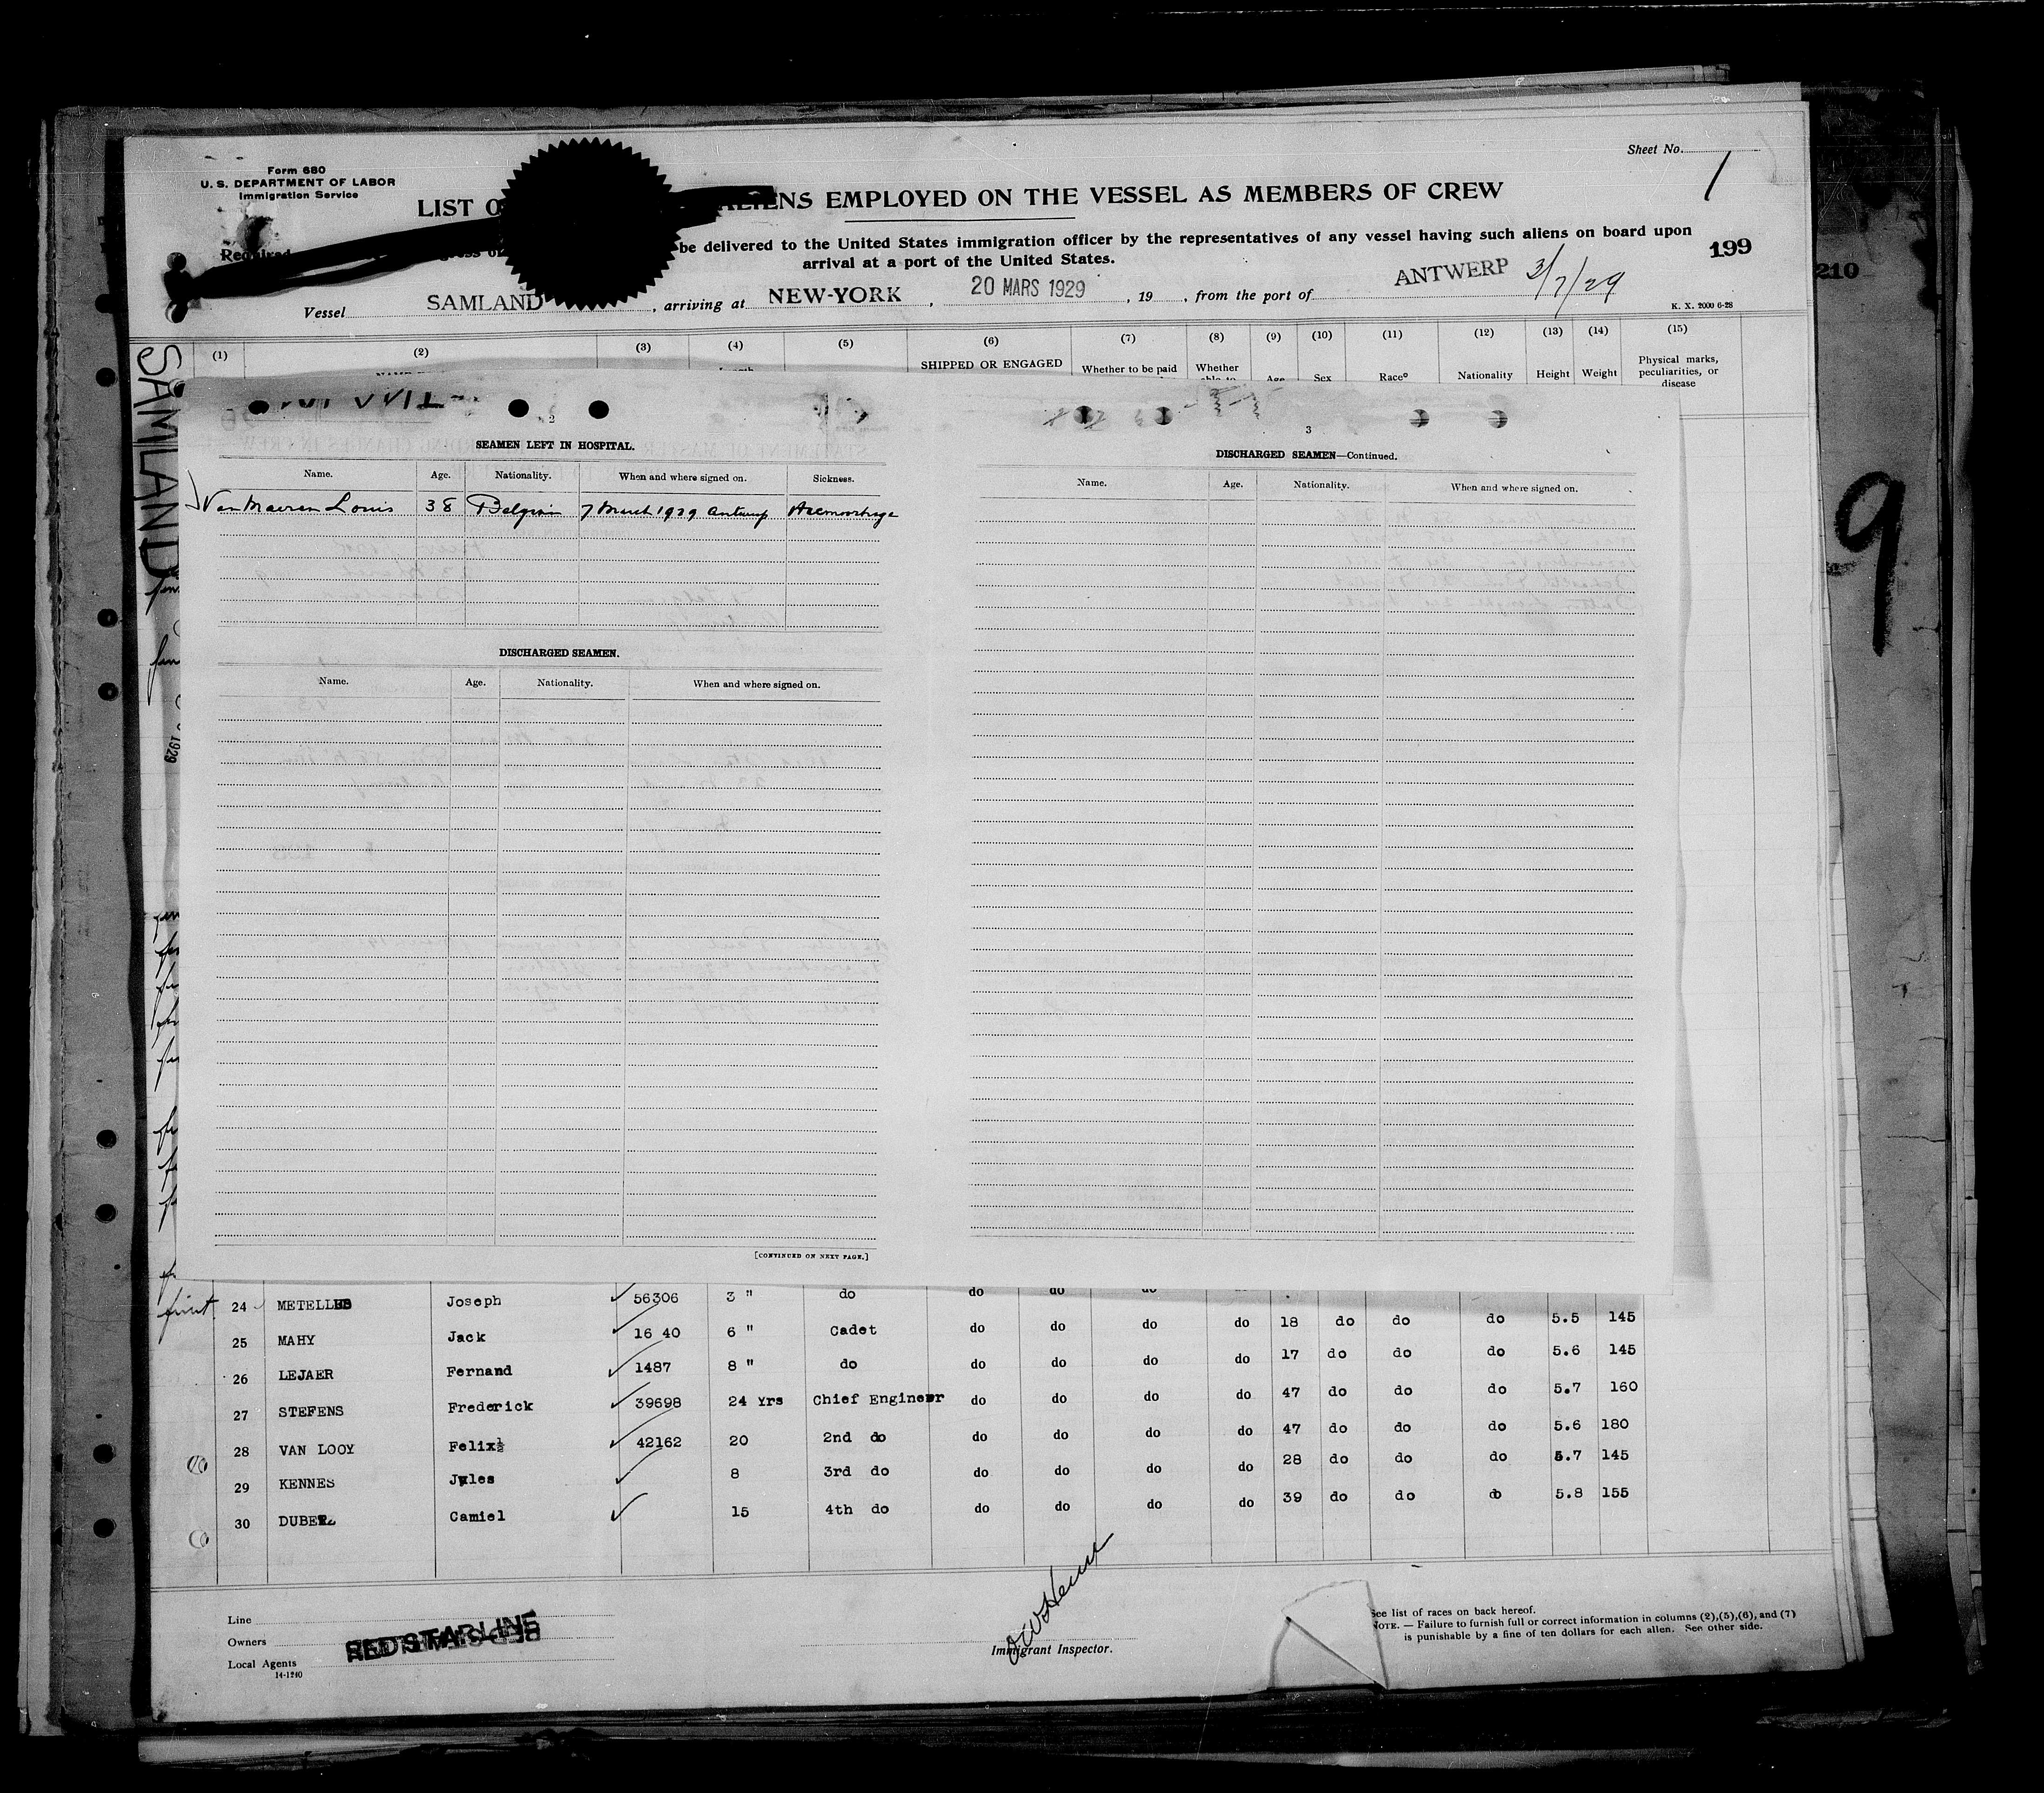 Sheet No.
1
Form 680
U. S. DEPARTMENT OF LABOR
Immigration Service
LIST O ALIENS EMPLOYED ON THE VESSEL AS MEMBERS OF CREW
Required be delivered to the United States immigration officer by the representatives of any vessel having such aliens on board upon
arrival at a port of the United States.
199
210
Vessel SAMLAND , arriving at NEW-YORK , 20 MARS 1929 , 19 , from the port of ANTWERP 3/7/29
K. X. 2000 6-28
(1) (2) (3) (4) (5) (6) (7) (8) (9) (10) (11) (12) (13) (14) (15)
SHIPPED OR ENGAGED Whether to be paid Whether able to Age Sex Race° Nationality Height Weight Physical marks, peculiarities, or disease
SAMLAND
1929
9
2
SEAMEN LEFT IN HOSPITAL.
Name. Age. Nationality. When and where signed on. Sickness.
Louis 38 Belgian 7 March 1929 Antwerp Haemorrhage
DISCHARGED SEAMEN.
Name. Age. Nationality. When and where signed on.
[CONTINUED ON NEXT PAGE.]
3
DISCHARGED SEAMEN—Continued.
Name. Age. Nationality. When and where signed on.
24 Joseph 56306 3 " do do do
25 MAHY Jack 16 40 6 " Cadet do do do do 18 do do do 5.5 145
26 LEJAER Fernand 1487 8 " do do do do do 17 do do do 5.6 145
27 STEFENS Frederick 39698 24 Yrs Chief Engineer do do do do 47 do do do 5.7 160
28 VAN LOOY Felix½ 42162 20 2nd do do do do do 47 do do do 5.6 180
29 KENNES Jules 8 3rd do do do do do 28 do do do 5.7 145
30 Camiel 15 4th do do do do do 39 do do do 5.8 155
Line
Owners
RED STAR LINE
Local Agents
14-1240
Immigrant Inspector.
See list of races on back hereof.
NOTE. — Failure to furnish full or correct information in columns (2),(5),(6), and (7)
is punishable by a fine of ten dollars for each alien. See other side.